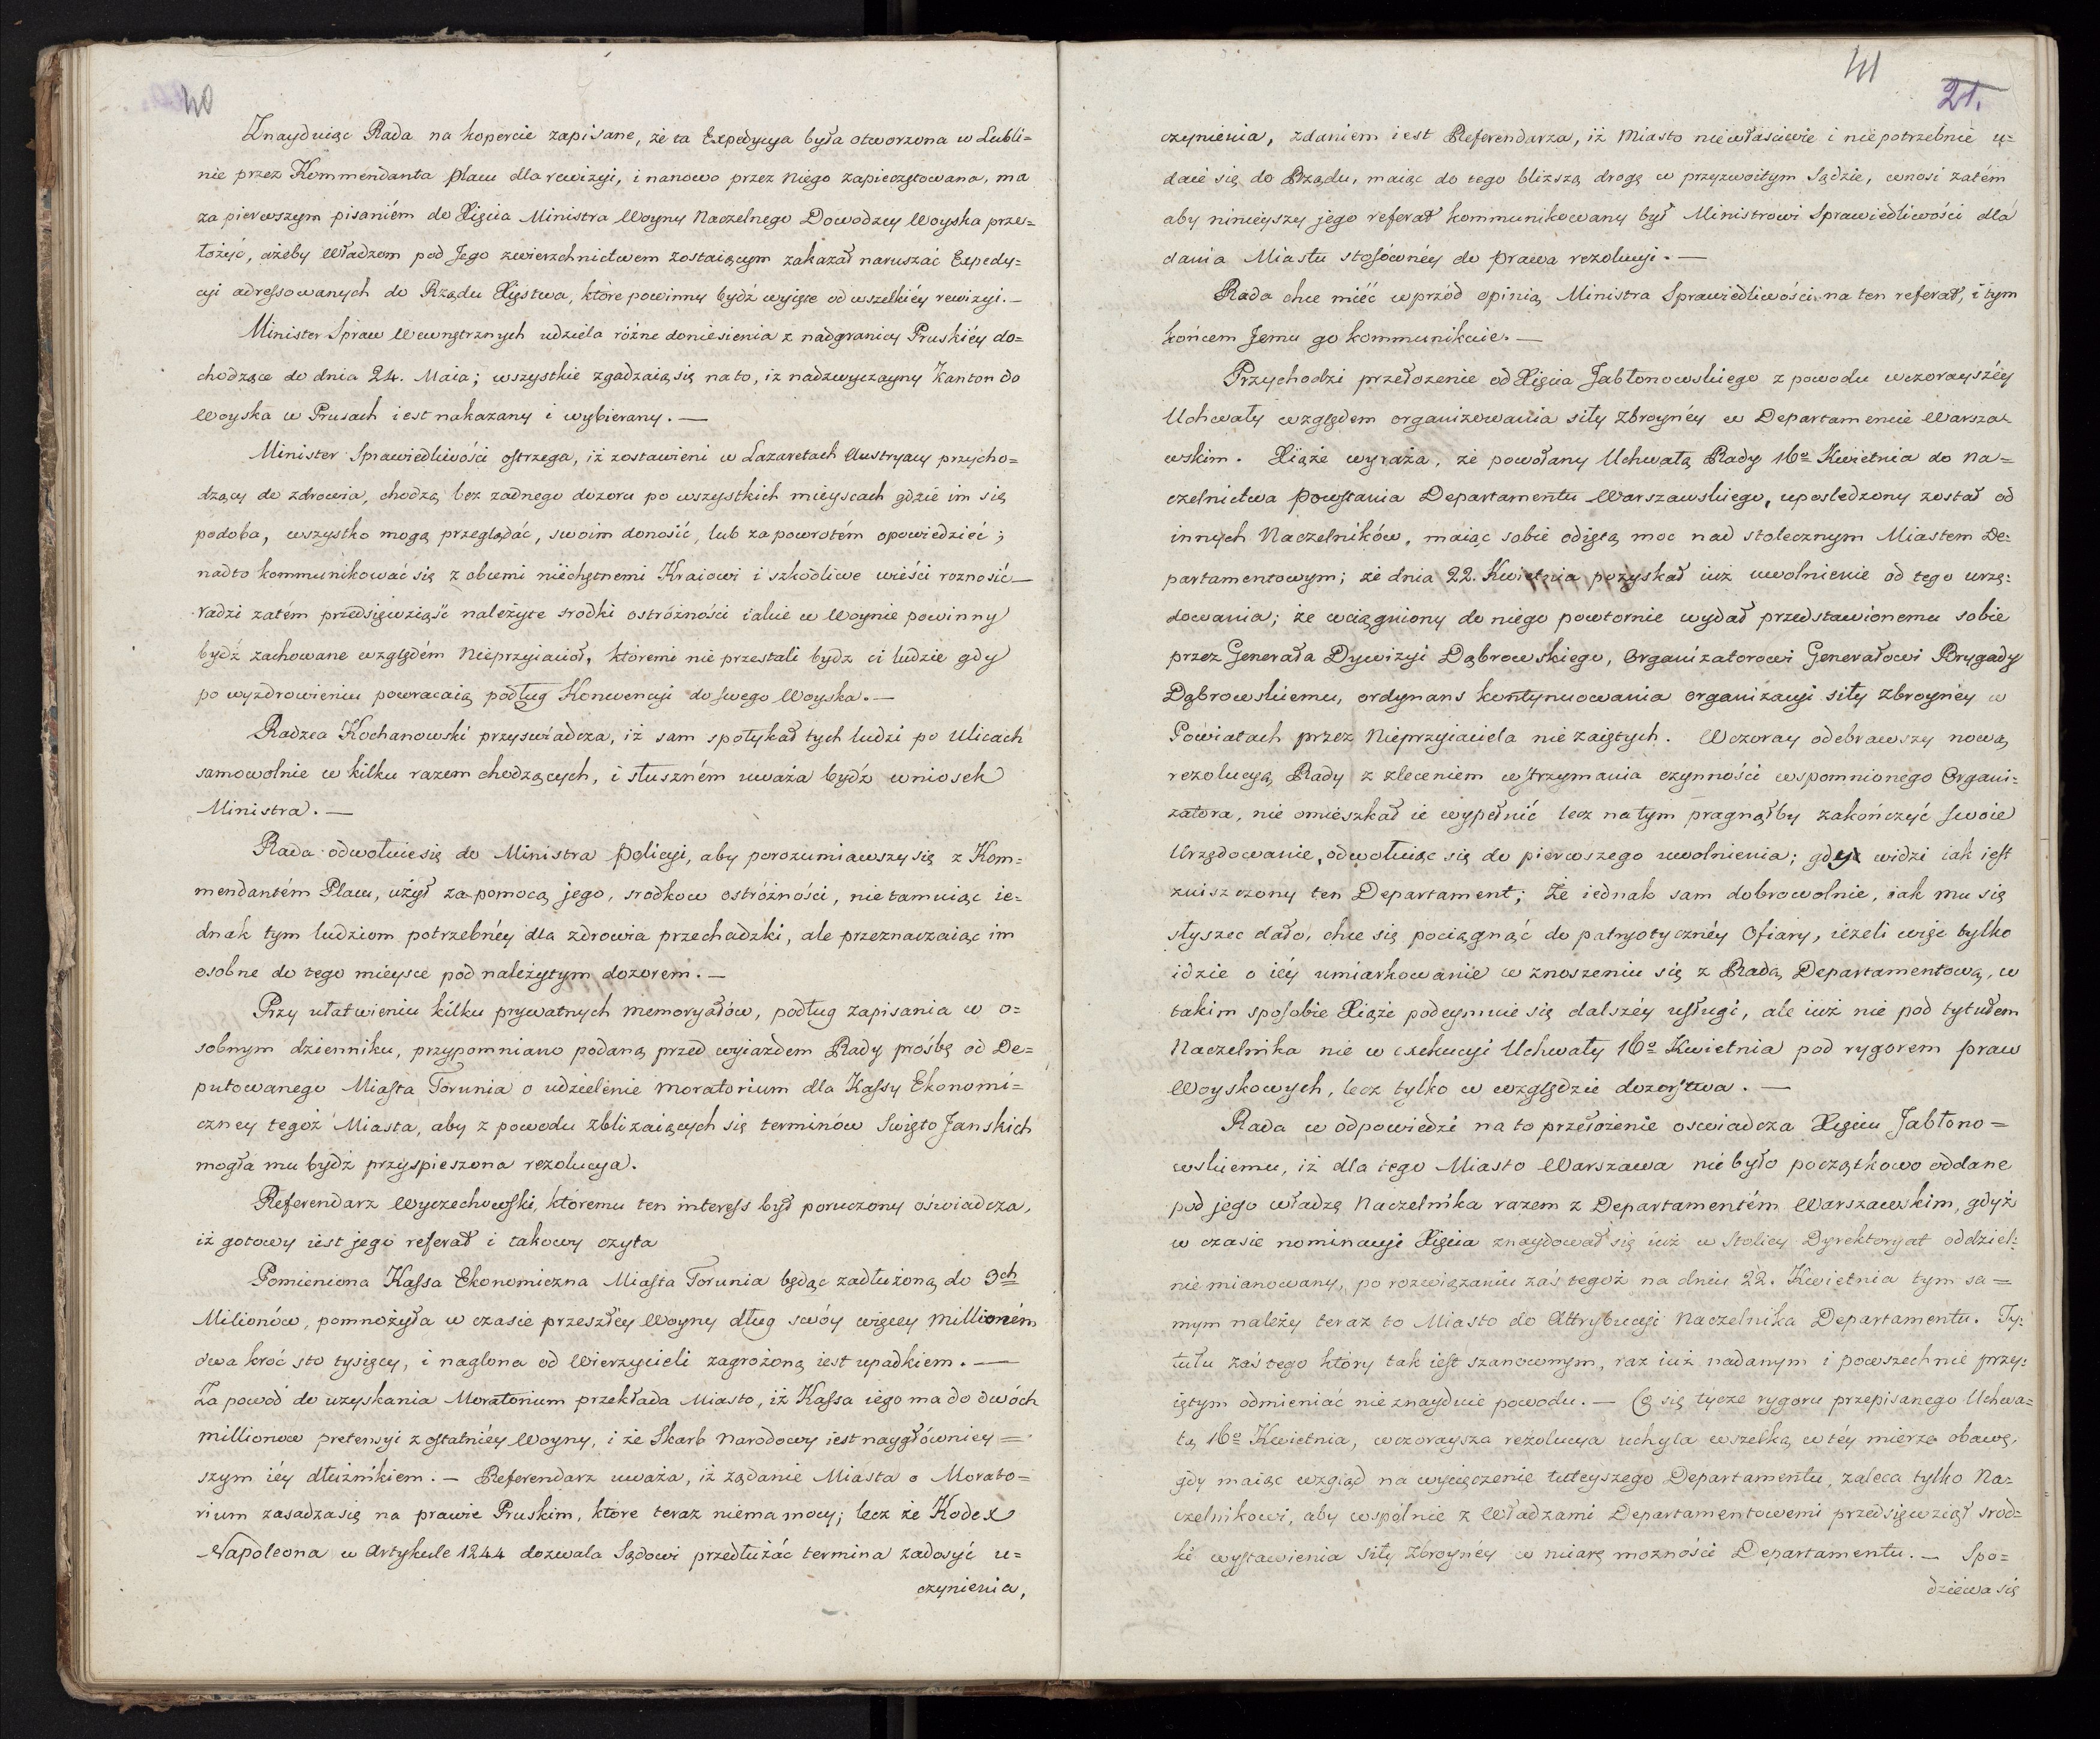 40
Znayduiąc Rada na kopercie zapisane, że ta Expedycya była otworzona w Lubli=
nie przez Kommendanta placu dla rewizyi, i nanowo przez Niego zapieczętowana, ma
za pierwszym pisaniém do Xięcia Ministra Woyny Naczelnego Dowodzcy Woyska prze=
łożyć, ażeby Władzom pod Jego zwierzchnictwem zostaiącym zakazał naruszać Expedy=
cyi adressowanych do Rządu Xięstwa, które powinny bydź wyięte od wszelkiéy rewizyi. —
Minister Spraw Wewnętrznych udziela różne doniesienia z nadgranicy Pruskiéy do=
chodzące do dnia 24. Maia; wszystkie zgadzaią się na to, iż nadzwyczayny Kanton do
Woyska w Prusach iest nakazany i wybierany. —
Minister Sprawiedliwości ostrzega, iż zostawieni w Lazaretach Austryacy przycho=
dzący do zdrowia, chodzą bez żadnego dozoru po wszystkich mieyscach gdzie im się
podoba, wszystko mogą przeglądać, swoim donosić, lub za powrotém opowiedzieć;
nadto kommunikować się z obcemi niechętnemi Kraiowi i szkodliwe wieści roznosić —
radzi zatém przedsięwziąść należyte srodki ostróżności iakie w Woynie powinny
bydź zachowane względém Nieprzyiaciół, któremi nie przestali bydz ci ludzie gdy
po wyzdrowieniu powracaią podług Konwencyi do swego Woyska. —
Radzca Kochanowski przyswiadcza, iż sam spotykał tych ludzi po Ulicach
samowolnie w kilku razem chodzących, i słuszném uważa bydź wniosek
Ministra. —
Rada odwołuie się do Ministra Policyi, aby porozumiawszy się z Kom=
mendantém Placu, użył za pomocą jego, srodkow ostróżności, nie tamuiąc ie=
dnak tym ludziom potrzebnéy dla zdrowia przechadzki, ale przeznaczaiąc im
osobne do tego mieysce pod należytym dozorem. —
Przy ułatwieniu kilku prywatnych memoryałów, podług zapisania w o=
sobnym dzienniku, przypomniano podaną przed wyiazdem Rady prośbę od De=
putowanego Miasta Torunia o udzielenie moratorium dla Kassy Ekonomi=
czney tegoż Miasta, aby z powodu zbliżaiących się terminów Swięto Janskich
mogła mu bydż przyspieszona rezolucya.
Referendarz Wyczechowski, któremu ten interess był poruczony oświadcza,
iż gotowy iest jego referał i takowy czyta
Pomieniona Kassa Ekonomiczna Miasta Torunia będąc zadłużoną do 3ch
Milionów, pomnożyła w czasie przeszłéy Woyny dług swóy więcey Millioném
dwa kroć sto tysięcy, i naglona od Wierzycieli zagrożoną iest upadkiem. —
Za powód do uzyskania Moratorium przekłada Miasto, iż Kassa iego ma do dwóch
millionow pretensyi z ostatniéy Woyny, i że Skarb Narodowy iest naygłówniey=
szym iéy dłużnikiem. — Referendarz uważa, iż żądanie Miasta o Morato=
rium zasadza się na prawie Pruskim, które teraz niema mocy; lecz że Kodex
Napoleona w Artykule 1244 dozwala Sądowi przedłużać termina zadosyć u=
czynienia,
41
21.
czynienia, zdaniem iest Referendarza, iż Miasto niewłaściwie i niepotrzebnie u=
daie się do Rządu, maiąc do tego bliższą drogę w przyzwoitym Sądzie, wnosi zatém
aby ninieyszy jego referał kommunikowany był Ministrowi Sprawiedliwości dla
dania Miastu stosównéy do prawa rezolucyi. —
Rada chce mieć wprzód opinią Ministra Sprawiedliwości na ten referał, i tym
końcem Jemu go kommunikuie. —
Przychodzi przełożenie od Xięcia Jabłonowskiego z powodu wczorayszéy
Uchwały względem organizowania siły zbroynéy w Departamencie Warsza=
wskim. Xiąże wyraża, że powołany Uchwałą Rady 16o Kwietnia do Na=
czelnictwa Powstania Departamentu Warszawskiego, uposledzony został od
innych Naczelników, maiąc sobie odiętą moc nad stołecznym Miastem De=
partamentowym; że dnia 22. Kwietnia pozyskał iuż uwolnienie od tego urzę=
dowania; że wciągniony do niego powtornie wydał przedstawionemu sobie
przez Generała Dywizyi Dąbrowskiego, Organizatorowi Generałowi Brygady
Dąbrowskiemu, ordynans kontynuowania organizacyi siły zbroyney w
Powiatach przez Nieprzyiaciela nie zaiętych. Wczoray odebrawszy nową
rezolucyą Rady z zleceniem wstrzymania czynności wspomnionego Organi=
zatora, nie omieszkał ie wypełnić lecz na tym pragnąłby zakończyć swoie
Urzędowanie, odwołuiąc się do pierwszego uwolnienia; gdyż widzi iak iest
zniszczony ten Departament; Że iednak sam dobrowolnie, iak mu się
słyszec dało, chce się pociągnąć do patryotycznéy Ofiary, ieżeli więc tylko
idzie o iéy umiarkowanie w znoszeniu się z Radą Departamentową, w
takim sposobie Xiąże podeymuie się dalszéy usługi, ale iuż nie pod tytułem
Naczelnika nie w exekucyi Uchwały 16o Kwietnia pod rygorem praw
Woyskowych, lecz tylko w względzie dozorstwa. —
Rada w odpowiedzi na to przełożenie oswiadcza Xięciu Jabłono=
wskiemu, iż dla tego Miasto Warszawa nie było początkowo oddane
pod jego władzę Naczelnika razem z Departamentém Warszawskim, gdyż
w czasie nominacyi Xięcia znaydował się iuż w Stolicy Dyrektoryat oddziel=
nie mianowany, po rozwiązaniu zaś tegoż na dniu 22. Kwietnia tym sa=
mym należy teraz to Miasto do Attrybucyi Naczelnika Departamentu. Ty=
tułu zaś tego który tak iest szanownym, raz iuż nadanym i powszechnie przy=
iętym odmieniać nie znayduie powodu. — Co się tycze rygoru przepisanego Uchwa=
łą 16o Kwietnia, wczoraysza rezolucya uchyla wszelką w téy mierze obawę,
gdy maiąc wzgląd na wycięczenie tuteyszego Departamentu, zaleca tylko Na=
czelnikowi, aby wspólnie z Władzami Departamentowemi przedsięwziął srod=
ki wystawienia siły zbroynéy w miarę możności Departamentu. — Spo=
dziewa się